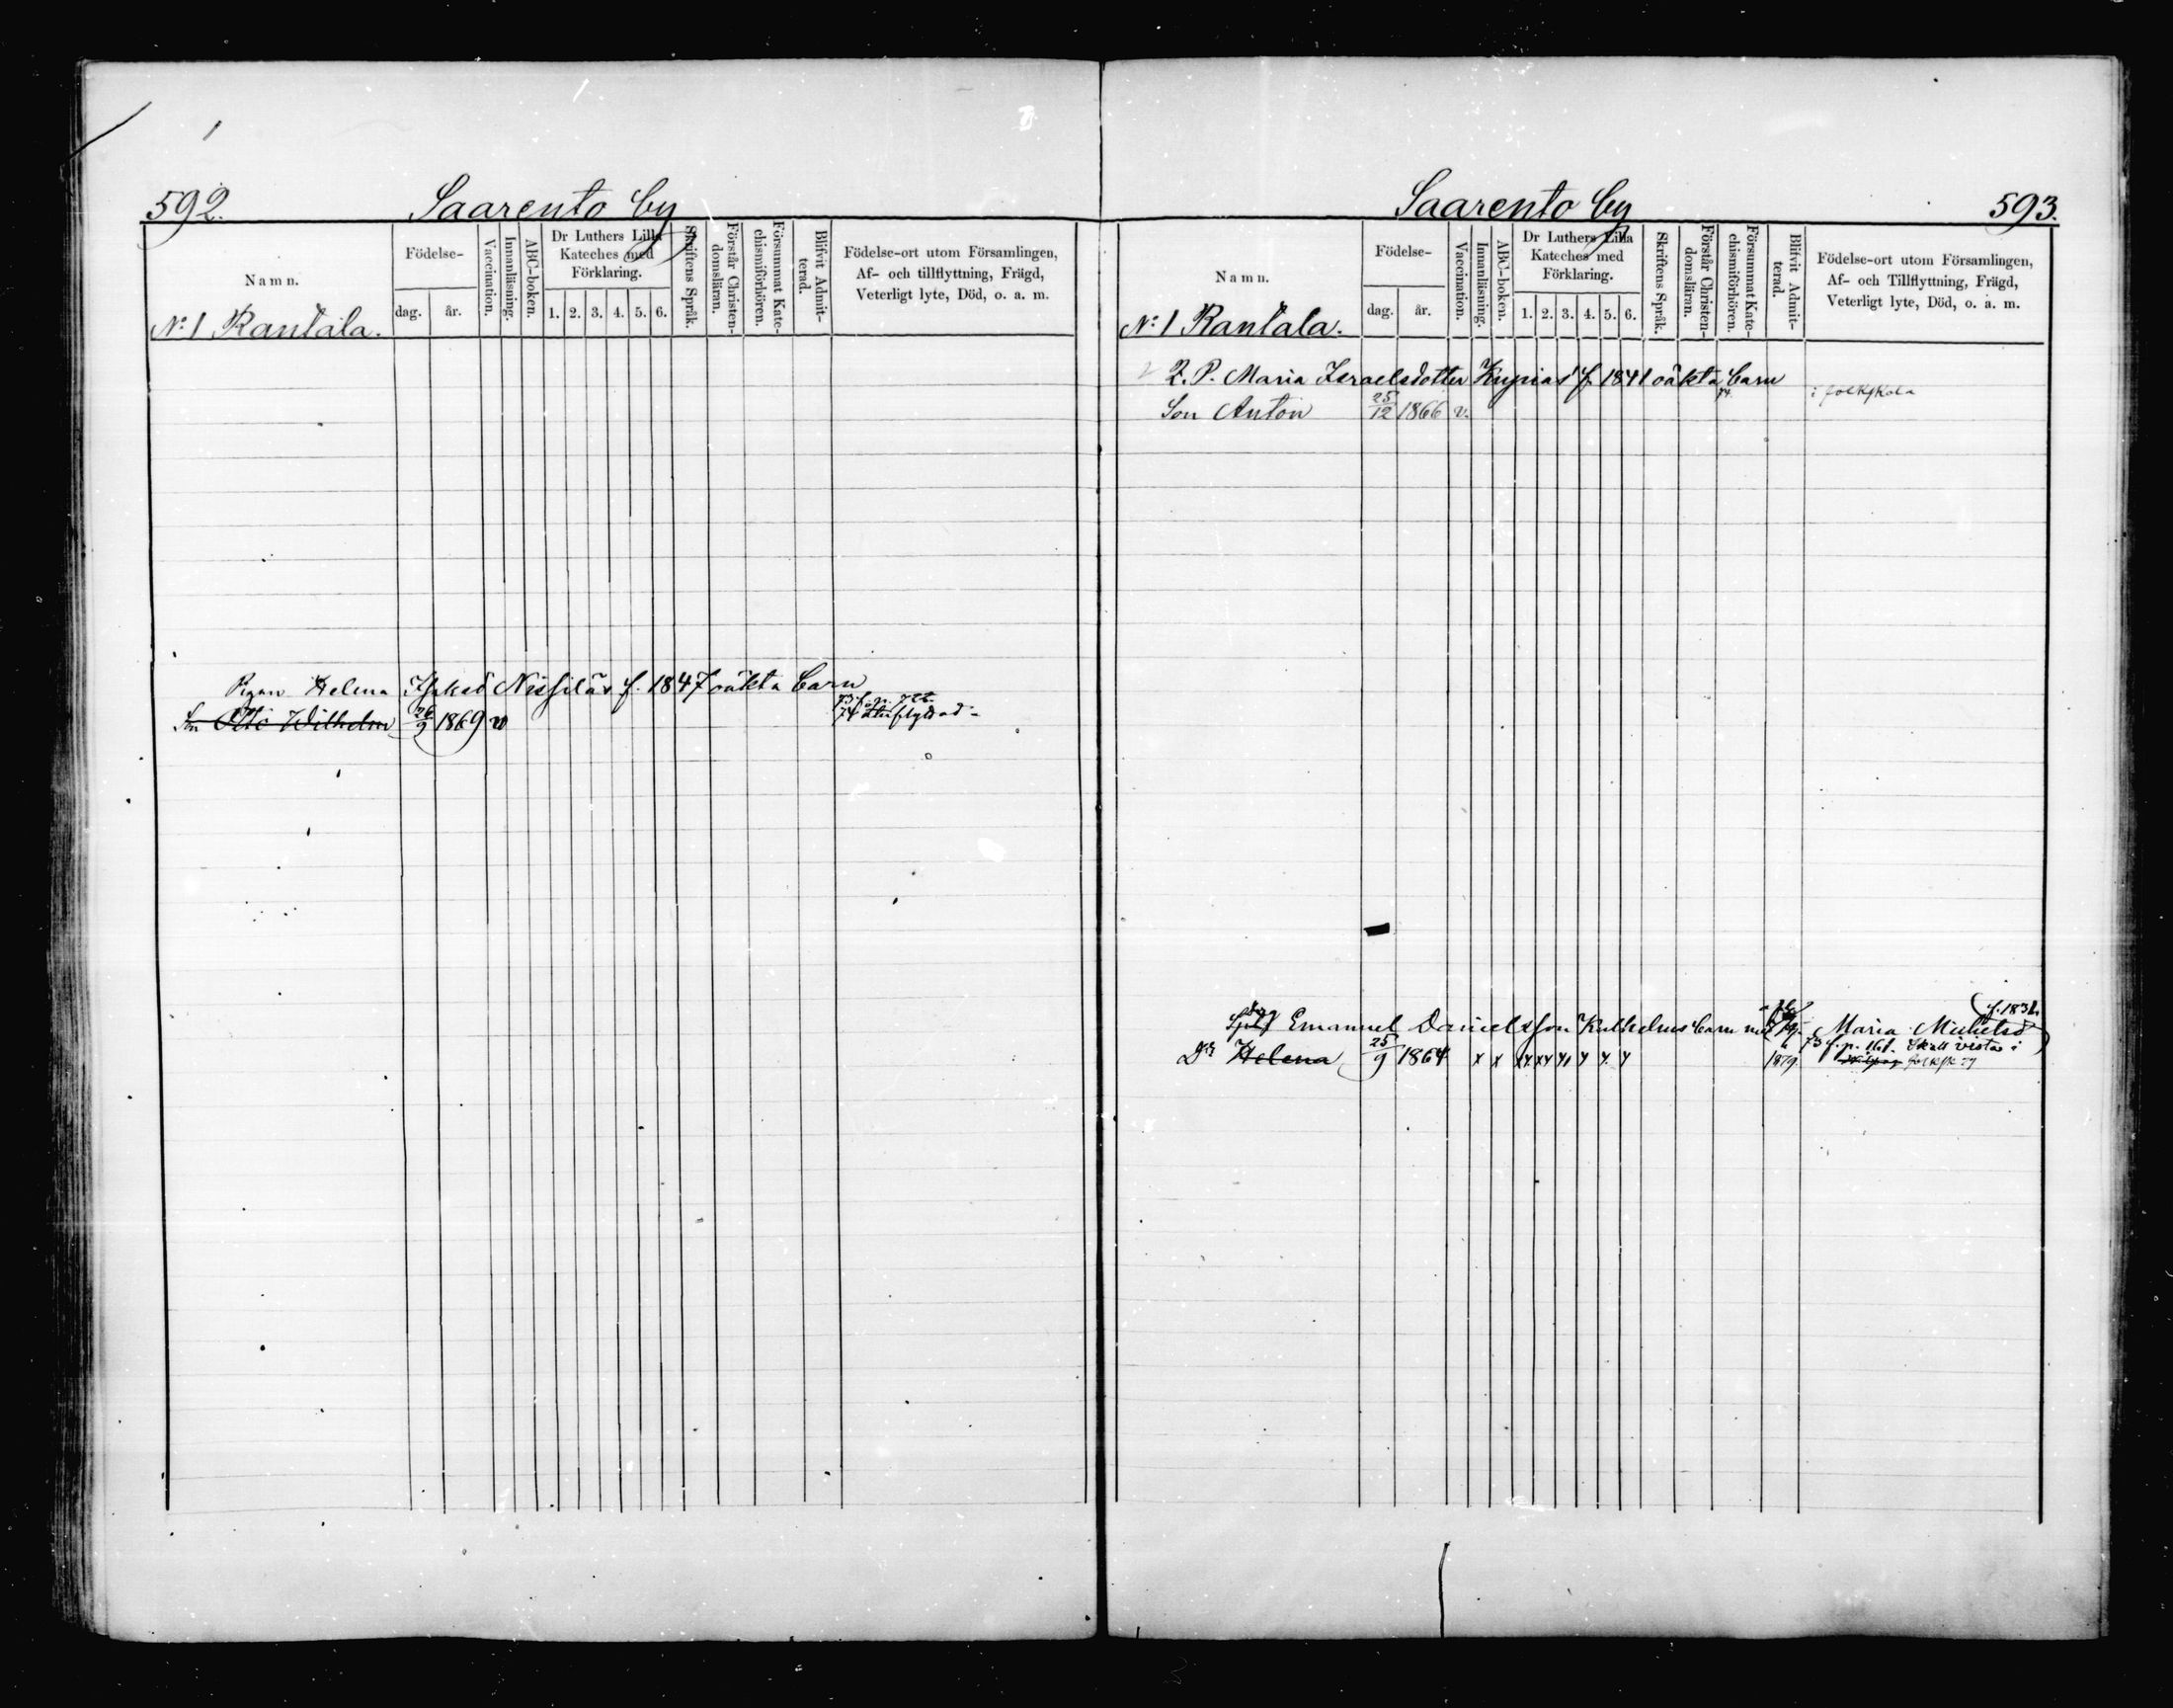 592.
Saarento by
Namn.
Födelse-
dag.
år.
Vaccination.
Innanläsning.
ABC-boken.
Dr Luthers Lilla
Kateches med
Förklaring.
1. 2. 3. 4. 5. 6.
Skriftens Språk.
Förstår Christen-
domsläran.
Försummat Kate-
chismiförhören.
Blifvit Admit-
terad.
Födelse-ort utom Församlingen,
Af- och tillflyttning, Frägd,
Veterligt lyte, Död, o. a. m.
No 1 Rantala.
Pigan Helena Isaksd Nissiläs f. 1847 oäkta barn
Son Otto Wilhelm 26/9 1869 v
74 återflyttad -
Saarento by
593.
Namn.
Födelse-
dag.
år.
Vaccination.
Innanläsning.
ABC-boken.
Dr Luthers Lilla
Kateches med
Förklaring.
1. 2. 3. 4. 5. 6.
Skriftens Språk.
Förstår Christen-
domsläran.
Försummat Kate-
chismiförhören.
Blifvit Admit-
terad.
Födelse-ort utom Församlingen,
Af- och Tillflyttning, Frägd,
Veterligt lyte, Död, o. a. m.
No 1 Rantala.
Q. P. Maria Israelsdotter Kupias f. 1841 oäkta barn
i folkskola
Son Anton 25/12 1866 v.
f. 1832.
Emanuel Danielsson barn med Maria Michelsd
Dr Helena 25/9 1864 x x 1879. f. p. 161. Skall vistas i